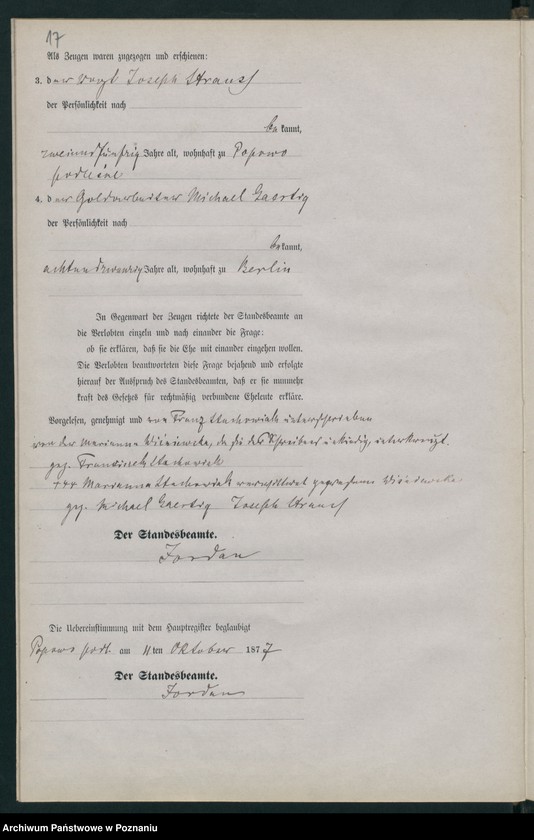 17
Als Zeugen waren zugezogen und erschienen:
3. der Vogt Joseph Strauss
der Persönlichkeit nach
bekannt,
zweiundfünfzig Jahre alt, wohnhaft zu Popowo
podleśne
4. der Goldarbeiter Michael Gaertig
der Persönlichkeit nach
bekannt,
achtundzwanzig Jahre alt, wohnhaft zu Berlin
In Gegenwart der Zeugen richtete der Standesbeamte an
die Verlobten einzeln und nach einander die Frage:
ob sie erklären, daß sie die Ehe mit einander eingehen wollen.
Die Verlobten beantworteten diese Frage bejahend und erfolgte
hierauf der Ausspruch des Standesbeamten, daß er sie nunmehr
kraft des Gesetzes für rechtmäßig verbundene Eheleute erkläre.
Vorgelesen, genehmigt und von Franz Stachowiak unterschrieben
von der Marianna Wiśniewska, da sie des Schreibens unkundig, unterkreuzt.
gez. Stachowiak
+++ Marianna Stachowiak verwittwet gewesene Wiśniewska
gez. Michael Gaertig Joseph Strauss
Der Standesbeamte.
Jordan
Die Uebereinstimmung mit dem Hauptregister beglaubigt
Popowo podl. am 4ten Oktober 1877
Der Standesbeamte.
Jordan
Archiwum Państwowe w Poznaniu